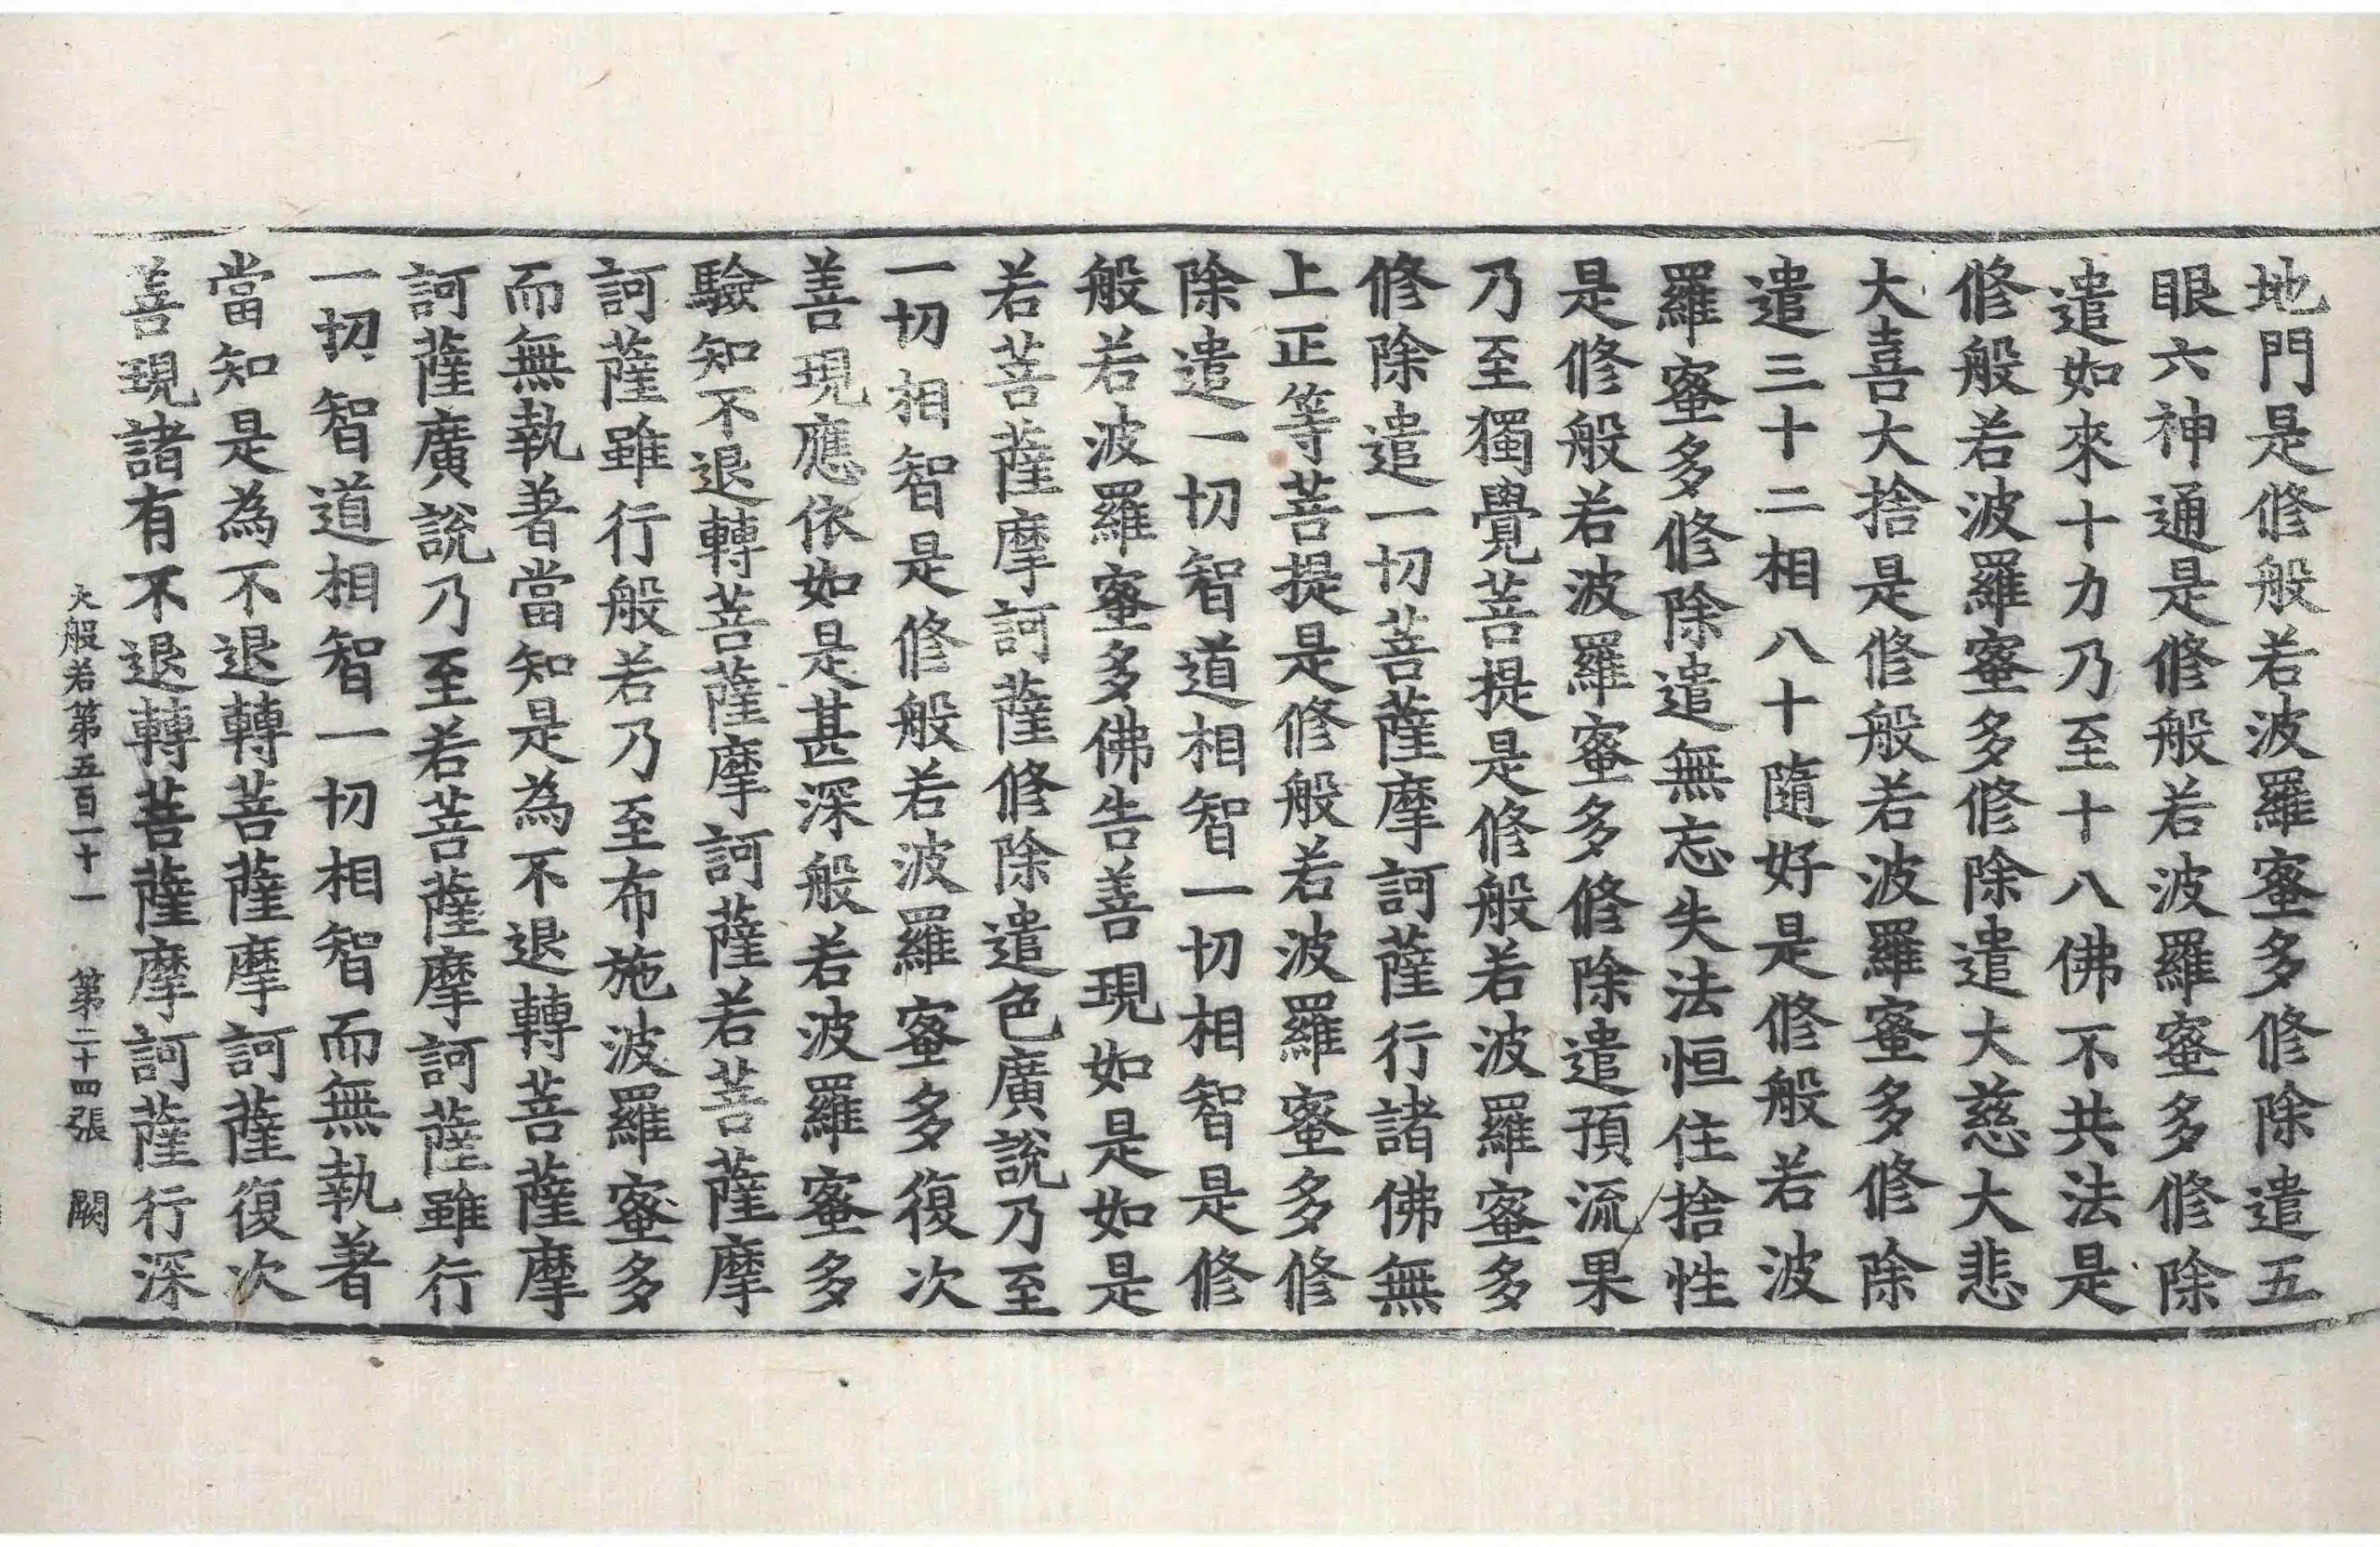 地門是修般若波羅蜜多修除遣五
眼六神通是修般若波羅蜜多修除
遣如來十力乃至十八佛不共法是
修般若波羅蜜多修除遣大慈大悲
大喜大捨是修般若波羅蜜多修除
遣三十二相八十隨好是修般若波
羅蜜多修除遣無忘失法恒住捨性
是修般若波羅蜜多修除遣預流果
乃至獨覺菩提是修般若波羅蜜多
修除遣一切菩薩摩訶薩行諸佛無
上正等菩提是修般若波羅蜜多修
除遣一切智道相智一切相智是修
般若波羅蜜多佛告善現如是如是
若菩薩摩訶薩修除遣色廣說乃至
一切相智是修般若波羅蜜多復次
善現應依如是甚深般若波羅蜜多
驗知不退轉菩薩摩訶薩若菩薩摩
訶薩雖行般若乃至布施波羅蜜多
而無執著當知是為不退轉菩薩摩
訶薩廣說乃至若菩薩摩訶薩雖行
一切智道相智一切相智而無執著
當知是為不退轉菩薩摩訶薩復次
善現諸有不退轉菩薩摩訶薩行深
大般若第五百一十一 第二十四張 闕